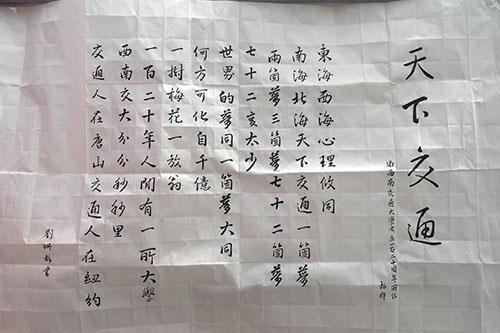 天下交通
西南交通大學成立一百二十周年而作
東海西海心理攸同
南海北海天下交通一箇夢
兩箇夢三箇夢七十二箇夢
七十二变太少
世界的夢同一箇夢大同
何方可化身千億
一樹梅花一放翁
一百二十年人間有一所大學
西南交大分分秒秒里
交通人在唐山交通人在紐約
劉書